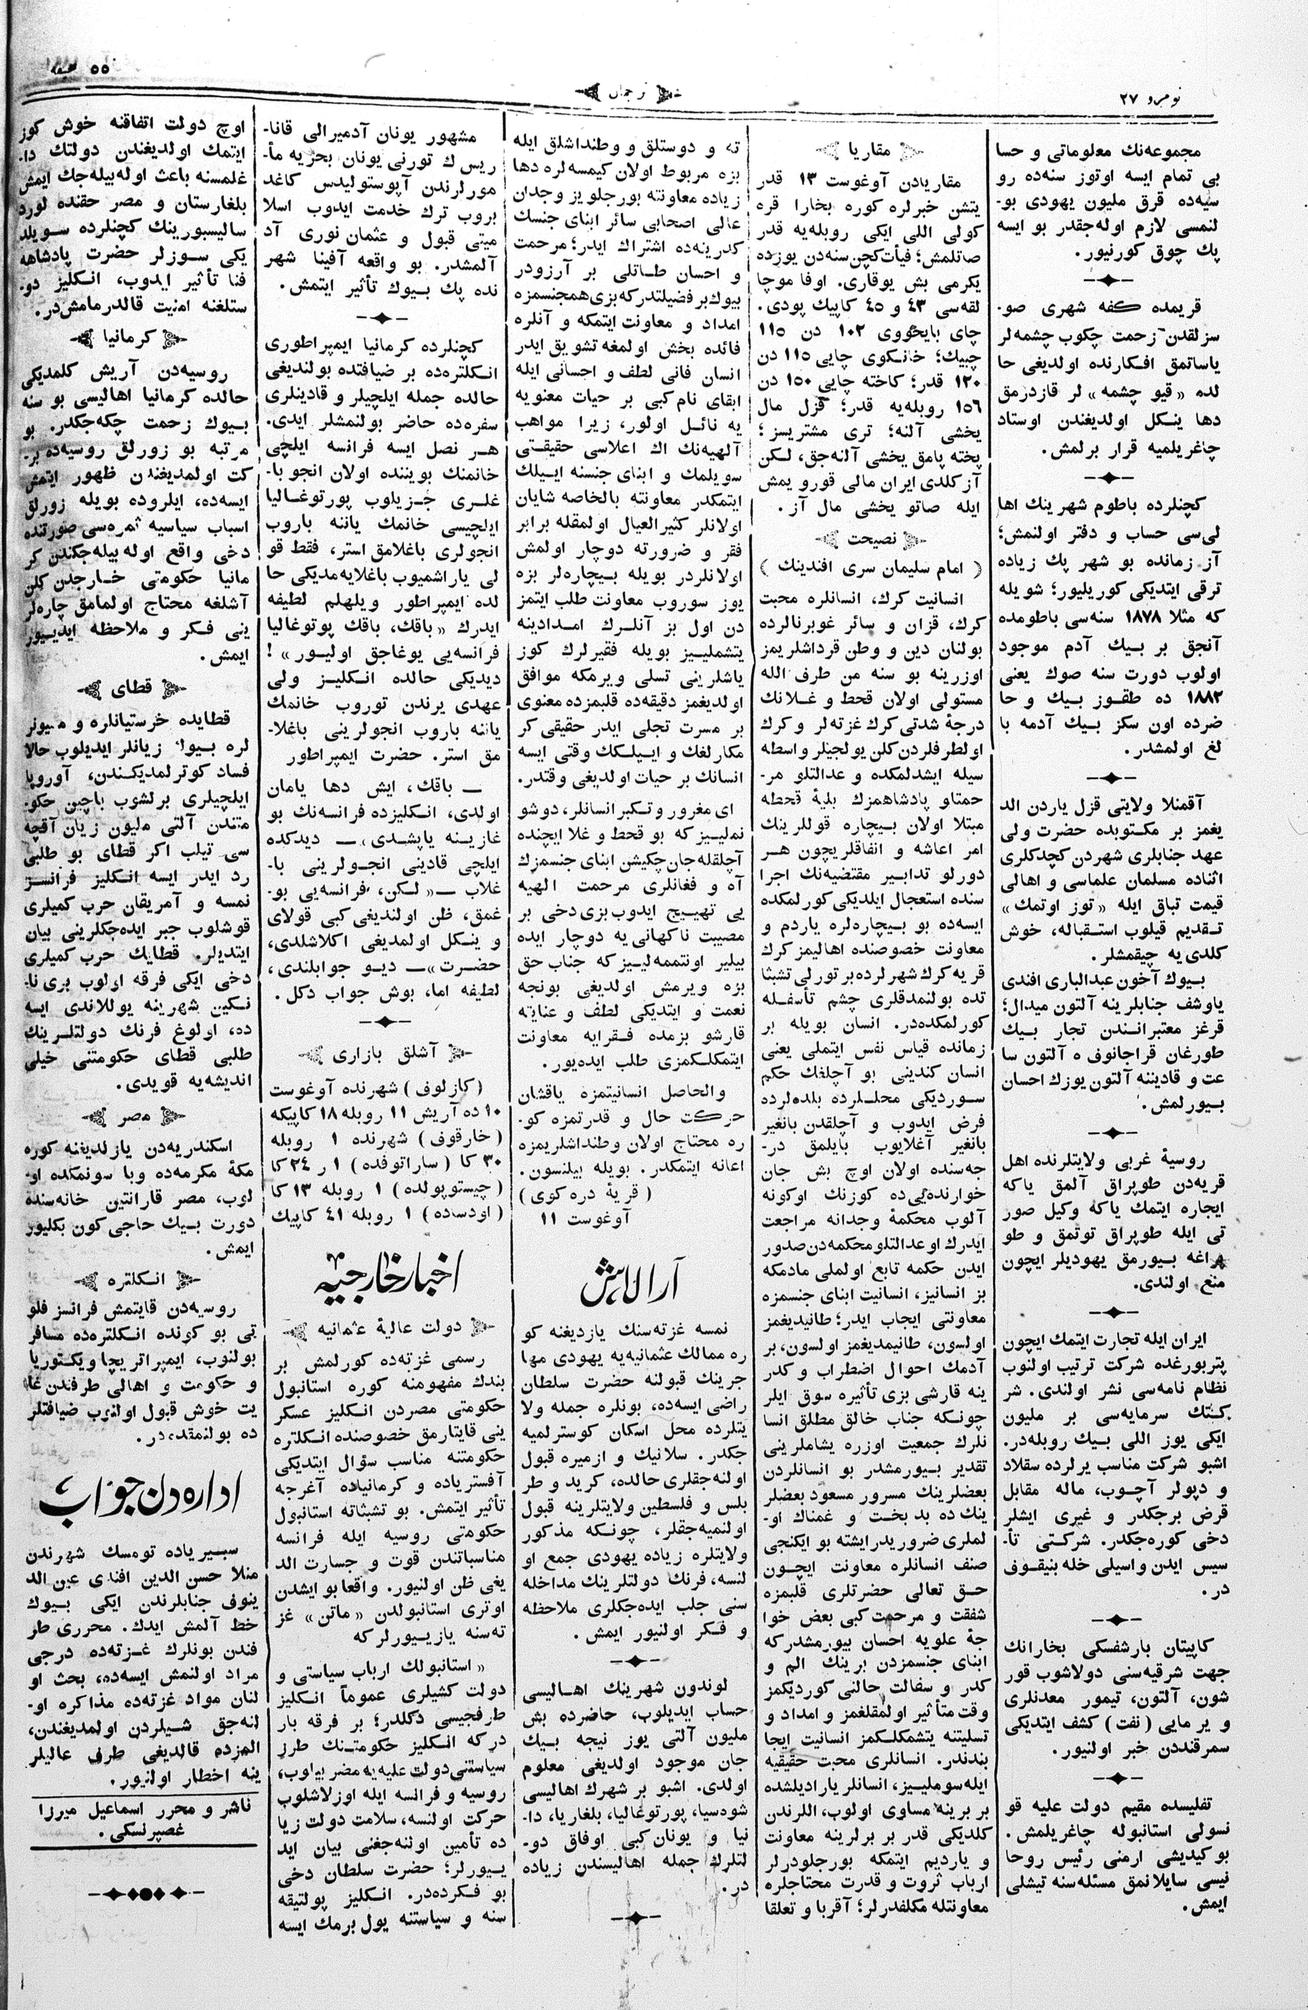 نومرو ٢٧
ترجمان
٥٥ صحيفه
مجموعه‌نك معلوماتی و حسا
بی تمام ايسه اوتوز سنه‌ده رو
سيه‌ده قرق مليون يهودی بو-
لنمسی لازم اوله‌جقدر بو ايسه
پك چوق كورنيور.
قريمده كفه شهری صو-
سزلقدن زحمت چكوب چشمه‌لر
ياساتمق افكارنده اولديغی حا
لده «قيو چشمه» لر قازدرمق
دها ينكل اولديغندن اوستاد
چاغريلميه قرار برلمش.
كچنلرده باطوم شهرينك اها
لی‌سی حساب و دفتر اولنمش؛
آز زمانده بو شهر پك زياده
ترقی ايتديكی كوريليور؛ شويله
كه مثلا ١٨٧٨ سنه‌سی باطومده
آنجق بر بيك آدم موجود
اولوب دورت سنه صوك يعنی
١٨٨٢ ده طقوز بيك و حا
ضرده اون سكز بيك آدمه با
لغ اولمشدر.
آقمنلا ولايتی قزل ياردن الد
يغمز بر مكتوبده حضرت ولی
عهد جنابلری شهردن كچدكلری
اثناده مسلمان علماسی و اهالی
قيمت تباق ايله «توز اوتمك»
تقديم قيلوب استقباله، خوش
كلدی‌يه چيقمشلر.
بيوك آخون عبدالباری افندی
ياوشف جنابلرينه آلتون ميدال؛
قرغز معتبرانندن تجار بيك
طورغان قراجانوف ه آلتون سا
عت و قادينته آلتون يوزك احسان
بيورلمش.
روسيۀ غربی ولايتلرنده اهل
قريه‌دن طوپراق آلمق ياكه
ايجاره ايتمك ياكه وكيل صور
تی ايله طوپراق توتمق و طو
پراغه بيورمق يهوديلر ايچون
منع اولندی.
ايران ايله تجارت ايتمك ايچون
پتربورغده شركت ترتيب اولنوب
نظام نامه‌سی نشر اولندی. شر
كتك سرمايه‌سی بر مليون
ايكی يوز اللی بيك روبله‌در.
اشبو شركت مناسب يرلرده سقلاد
و دپولر آچوب، ماله مقابل
قرض برجكدر و غيری ايشلر
دخی كوره‌جكدر. شركتی تأ-
سيس ايدن واسيلی خله بنيقوف
در.
كاپيتان بارشفسكی بخارانك
جهت شرقيه‌سنی دولاشوب قور
شون، آلتون، تيمور معدنلری
و ير مايی (نفت) كشف ايتديكی
سمرقنددن خبر اولنيور.
تفليسده مقيم دولت عليه قو
نسولی استانبوله چاغريلمش.
بو كيديشی ارمنی رئيس روحا
نيسی سايلانمق مسئله‌سنه تيشلی
ايمش.
مقاريا
مقاريادن آوغوست ١٣ قدر
يتشن خبرلره كوره بخارا قره
كولی اللی ايكی روبله‌يه قدر
صاتلمش؛ فيأت كچن سنه‌دن يوزده
يكرمی بش يوقاری. اوفا موچا
لقه‌سی ٤٣ و ٤٥ كاپيك پودی.
چای بايخووی ١٠٢ دن ١١٥
چيك؛ خانكوی چايی ١١٥ دن
١٣٠ قدر؛ كاخته چايی ١٥٠ دن
١٥٦ روبله‌يه قدر؛ قزل مال
يخشی آلنه؛ تری مشتريسز؛
پخته پامق يخشی آلنه‌جق، لكن
آز كلدی ايران مالی قورو يمش
ايله صاتو يخشی مال آز.
نصيحت
(امام سليمان سری افندينك)
انسانيت كرك، انسانلره محبت
كرك، قزان و سائر غوبرنالرده
بولنان دين و وطن قرداشلريمز
اوزرينه بو سنه من طرف الله
مستولی اولان قحط و غلانك
درجۀ شدتی كرك غزته‌لر و كرك
اولطرفلردن كلن يولجيلر واسطه
سيله ايشدلمكده و عدالتلو مر-
حمتلو پادشاهمزك بليۀ قحطه
مبتلا اولان بيچاره قوللرينك
امر اعاشه و انفاقلريچون هر
دورلو تدابير مقتضيه‌نك اجرا
سنده استعجال ايلديكی كورلمكده
ايسه‌ده بو بيچاره‌لره ياردم و
معاونت خصوصنده اهاليمز كرك
قريه كرك شهرلرده بر تورلی تشبثا
تده بولنمدقلری چشم تأسفله
كورلمكده‌در. انسان بويله بر
زمانده قياس نفس ايتملی يعنی
انسان كندينی بو آچلغك حكم
سورديكی محللرده بلده‌لرده
فرض ايدوب و آچلقدن بانغير
بانغير آغلايوب بايلمق در-
جه‌سنده اولان اوچ بش جان
خوارنده‌يی‌ده كوزنك اوكونه
آلوب محكمۀ وجدانه مراجعت
ايدرك او عدالتلو محكمه‌دن صدور
ايدن حكمه تابع اولملی مادمكه
بز انسانيز، انسانيت ابنای جنسمزه
معاونتی ايجاب ايدر؛ طانيديغمز
اولسون، طانيمديغمز اولسون، بر
آدمك احوال اضطراب و كدر
ينه قارشی بزی تأثيره سوق ايلر
چونكه جناب خالق مطلق انسا
نلرك جمعيت اوزره يشاملرينی
تقدير بيورمشدر بو انسانلردن
بعضلرينك مسرور مسعود بعضلر
ينك ده بد بخت و غمناك او-
لملری ضروريدر ايشته بو ايكنجی
صنف انسانلره معاونت ايچون
حق تعالی حضرتلری قلبمزه
شفقت و مرحمت كبی بعض خوا
جۀ علويه احسان بيورمشدر كه
ابنای جنسمزدن برينك الم و
كدر و سفالت حالنی كورديكمز
وقت متأثير اولمقلغمز و امداد و
تسليتنه يتشمكلكمز انسانيت ايجا
بندندر. انسانلری محبت حقيقيه
ايله سومليز، انسانلر ياراديلشده
بر برينه مساوی اولوب، اللرندن
كلديكی قدر بر برلرينه معاونت
و يارديم ايتمكه بورجلودرلر
ارباب ثروت و قدرت محتاجلره
معاونتله مكلفدرلر؛ آقربا و تعلقا
ته و دوستلق و وطنداشلق ايله
بزه مربوط اولان كيمسه‌لره دها
زياده معاونته بورجلويز وجدان
عالی اصحابی سائر ابنای جنسك
كدرينه‌ده اشتراك ايدر؛ مرحمت
و احسان طاتلی بر آرزودر
بيوك بر فضيلتدر كه بزی همجنسمزه
امداد و معاونت ايتمكه و آنلره
فائده بخش اولمغه تشويق ايدر
انسان فانی لطف و احسانی ايله
ابقای نام كبی بر حيات معنويه
يه نائل اولور، زيرا مواهب
آلهيه‌نك اك اعلاسی حقيقتی
سويلمك و ابنای جنسنه ايلك
ايتمكدر معاونته بالخاصه شايان
اولانلر كثير العيال اولمقله برابر
فقر و ضرورته دوچار اولمش
اولانلردر بويله بيچاره‌لر بزه
يوز سوروب معاونت طلب ايتمز
دن اول بز آنلرك امدادينه
يتشمليز بويله فقيرلرك كوز
ياشلرينی تسلی ويرمكه موافق
اولديغمز دقيقه‌ده قلبمزده معنوی
بر مسرت تجلی ايدر حقيقی كر
مكارلغك و ايلكك وقتی ايسه
انسانك بر حيات اولديغی وقتدر.
ای مغرور و تكبر انسانلر، دوشو
نمليز كه بو قحط و غلا ايچنده
آچلقله جان چكيشن ابنای جنسمزك
آه و فغانلری مرحمت الهيه
يی تهييج ايدوب بزی دخی بر
مصيبت ناكهانی‌يه دوچار ايده
بيلير اونتممه‌ليز كه جناب حق
بزه ويرمش اولديغی بونجه
نعمت و ايتديكی لطف و عنايته
قارشو بزمده فقرايه معاونت
ايتمكلكمزی طلب ايده‌يور.
والحاصل انسانيتمزه ياقشان
حركت حال و قدرتمزه كو-
ره محتاج اولان وطنداشلريمزه
اعانه ايتمكدر. بويله بيلنسون.
(قريۀ دره‌كوی)
آوغوست ١١
آرالاش
نمسه غزته‌سنك يازديغنه كو
ره ممالك عثمانيه‌يه يهودی مها
جرينك قبولنه حضرت سلطان
راضی ايسه‌ده، بونلره جمله ولا
يتلرده محل اسكان كوسترلميه
جكدر. سلانيك و ازميره قبول
اولنه‌جقلری حالده، كريد و طر
بلس و فلسطين ولايتلرينه قبول
اولنميه‌جقلر، چونكه مذكور
ولايتلره زياده يهودی جمع او
لنسه، فرنك دولتلرينك مداخله
سنی جلب ايده‌جكلری ملاحظه
و فكر اولنيور ايمش.
لوندون شهرينك اهاليسی
حساب ايديلوب، حاضرده بش
مليون آلتی يوز نيجه بيك
جان موجود اولديغی معلوم
اولدی. اشبو بر شهرك اهاليسی
شوه‌سيا، پورتوغاليا، بلغاريا، دا-
نيا و يونان كبی اوفاق دو-
لتلرك جمله اهاليسندن زياده
در.
مشهور يونان آدميرالی قانا-
ريس ك تورنی يونان بحريه مأ-
مورلرندن آپوستوليدس كاغد
بروب ترك خدمت ايدوب اسلا
ميتی قبول و عثمان نوری آد
آلمشدر. بو واقعه آفينا شهر
نده پك بيوك تأثير ايتمش.
كچنلرده كرمانيا ايمپراطوری
انكلتره‌ده بر ضيافتده بولنديغی
حالده جمله ايلچيلر و قادينلری
سفره‌ده حاضر بولنمشلر ايدی.
هر نصل ايسه فرانسه ايلچی
خانمنك بويننده اولان انجو با-
غلری جزيلوب پورتوغاليا
ايلچيسی خانمك ياننه باروب
انجولری باغلامق استر، فقط قو
لی ياراشميوب باغلايه‌مديكی حا
لده ايمپراطور ويلهلم لطيفه
ايدرك «باقك، باقك پوتوغاليا
فرانسه‌يی يوغاجق اوليور»!
ديديكی حالده انكليز ولی
عهدی يرندن توروب خانمك
ياننه باروب انجولرينی باغلا-
مق استر. حضرت ايمپراطور
— باقك، ايش دها يامان
اولدی، انكليزده فرانسه‌نك بو
غازينه ياپشدی»— ديدكده
ايلچی قادينی انجولرينی با-
غلاب —«لكن، فرانسه‌يی بو-
غمق، ظن اولنديغی كبی قولای
و ينكل اولمديغی اكلاشلدی،
حضرت»— ديو جوابلندی،
لطيفه اما، بوش جواب دكل.
آشلق بازاری
(كازلوف) شهرنده آوغوست
١٠ ده آريش ١١ روبله ١٨ كاپيكه
(خارقوف) شهرنده ١ روبله
٣٠ كا (ساراتوفده) ١ ر ٢٤ كا
(چيستوپولده) ١ روبله ١٣ كا
(اودسه‌ده) ١ روبله ٤١ كاپيك
اخبار خارجيه
دولت عاليۀ عثمانيه
رسمی غزته‌ده كورلمش بر
بندك مفهومنه كوره استانبول
حكومتی مصردن انكليز عسكر
ينی قايتارمق خصوصنده انكلتره
حكومتنه مناسب سؤال ايتديكی
آفستريا‌ده و كرمانياده آغرجه
تأثير ايتمش. بو تشبثاته استانبول
حكومتی روسيه ايله فرانسه
مناسباتندن قوت و جسارت الد
يغی ظن اولنيور. واقعا بو ايشدن
اوتری استانبولدن «ماتن» غز
ته‌سنه يازيورلر كه
«استانبولك ارباب سياستی و
دولت كشيلری عموماً انكليز
طرفجيسی دكلدر؛ بر فرقه بار
در كه انكليز حكومتنك طرز
سياستنی دولت عليه‌يه مضر بيلوب،
روسيه و فرانسه ايله اوزلاشلوب
حركت اولنسه، سلامت دولت زيا
ده تأمين اولنه‌جغنی بيان ايد
يورلر؛ حضرت سلطان دخی
بو فكرده‌در. انكليز پولتيقه
سنه و سياستنه يول برمك ايسه
اوچ دولت اتفاقنه خوش كوز
ايتمك اولديغندن دولتك دا-
غلمسنه باعث اوله‌بيله‌جك ايمش
بلغارستان و مصر حقنده لورد
ساليسبورينك كچنلرده سويلد
يكی سوزلر حضرت پادشاهه
فنا تأثير ايدوب، انكليز دو-
ستلغنه امنيت قالدرمامش‌در.
كرمانيا
روسيه‌دن آريش كلمديكی
حالده كرمانيا اهاليسی بو سنه
بيوك زحمت چكه‌جكدر. بو
مرتبه بو زورلق روسيه‌ده بر-
كت اولمديغندن ظهور ايتمش
ايسه‌ده، ايلروده بويله زورلق
اسباب سياسيه ثمره‌سی صورتنده
دخی واقع اوله‌بيله‌جكندن كر
مانيا حكومتی خارجدن كلن
آشلغه محتاج اولمامق چاره‌لر
ينی فكر و ملاحظه ايديور
ايمش.
قطای
قطايده خرستيانلره و ميونر
لره بيوك زيانلر ايديلوب حالا
فساد كوترلمديكندن، آوروپا
ايلچيلری برلشوب باچين حكو-
متندن آلتی مليون زيان آقچه
سی تيلب اكر قطای بو طلبی
رد ايدر ايسه انكليز فرانسز
نمسه و آمريقان حرب كميلری
قوشلوب جبر ايده‌جكلرينی بيان
ايتديلر. قطايك حرب كميلری
دخی ايكی فرقه اولوب بری نا-
نكين شهرينه يوللاندی ايسه
ده، اولوغ فرنك دولتلرينك
طلبی قطای حكومتنی خيلی
انديشه‌يه قويدی.
مصر
اسكندريه‌دن يازلديغنه كوره
مكۀ مكرمه‌ده وبا سونمكده او-
لوب، مصر قارانتين خانه‌سنده
دورت بيك حاجی كون بكليور
ايمش.
انكلتره
روسيه‌دن قايتمش فرانسز فلو
تی بو كونده انكلتره‌ده مسافر
بولنوب، ايمپراتريچا ويكتوريا
و حكومت و اهالی طرفندن غا
يت خوش قبول اولنوب ضيافتلر
ده بولنمقده‌در.
اداره‌دن جواب
سبيرياده تومسك شهرندن
منلا حسن الدين افندی عين الد
ينوف جنابلرندن ايكی بيوك
خط آلمش ايدك. محرری طر
فندن بونلرك غزته‌ده درجی
مراد اولنمش ايسه‌ده، بحث او
لنان مواد غزته‌ده مذاكره او-
لنه‌جق شيلردن اولمديغندن،
المزده قالديغی طرف عاليلر
ينه اخطار اولنيور.
ناشر و محرر اسماعيل ميرزا
غصپرنسكی.